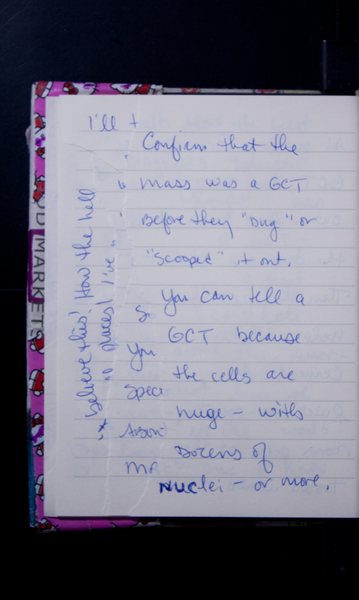 I'll t
Confirm that the
mass was a GCT
Before they "Dug" or
"Scooped" it out.
You can tell a
GCT because
the cells are
huge - with
Dozens of
nuclei - or more.
S
You
Speci
Mr
believe this! How the hell
places! I've
D MARKETS